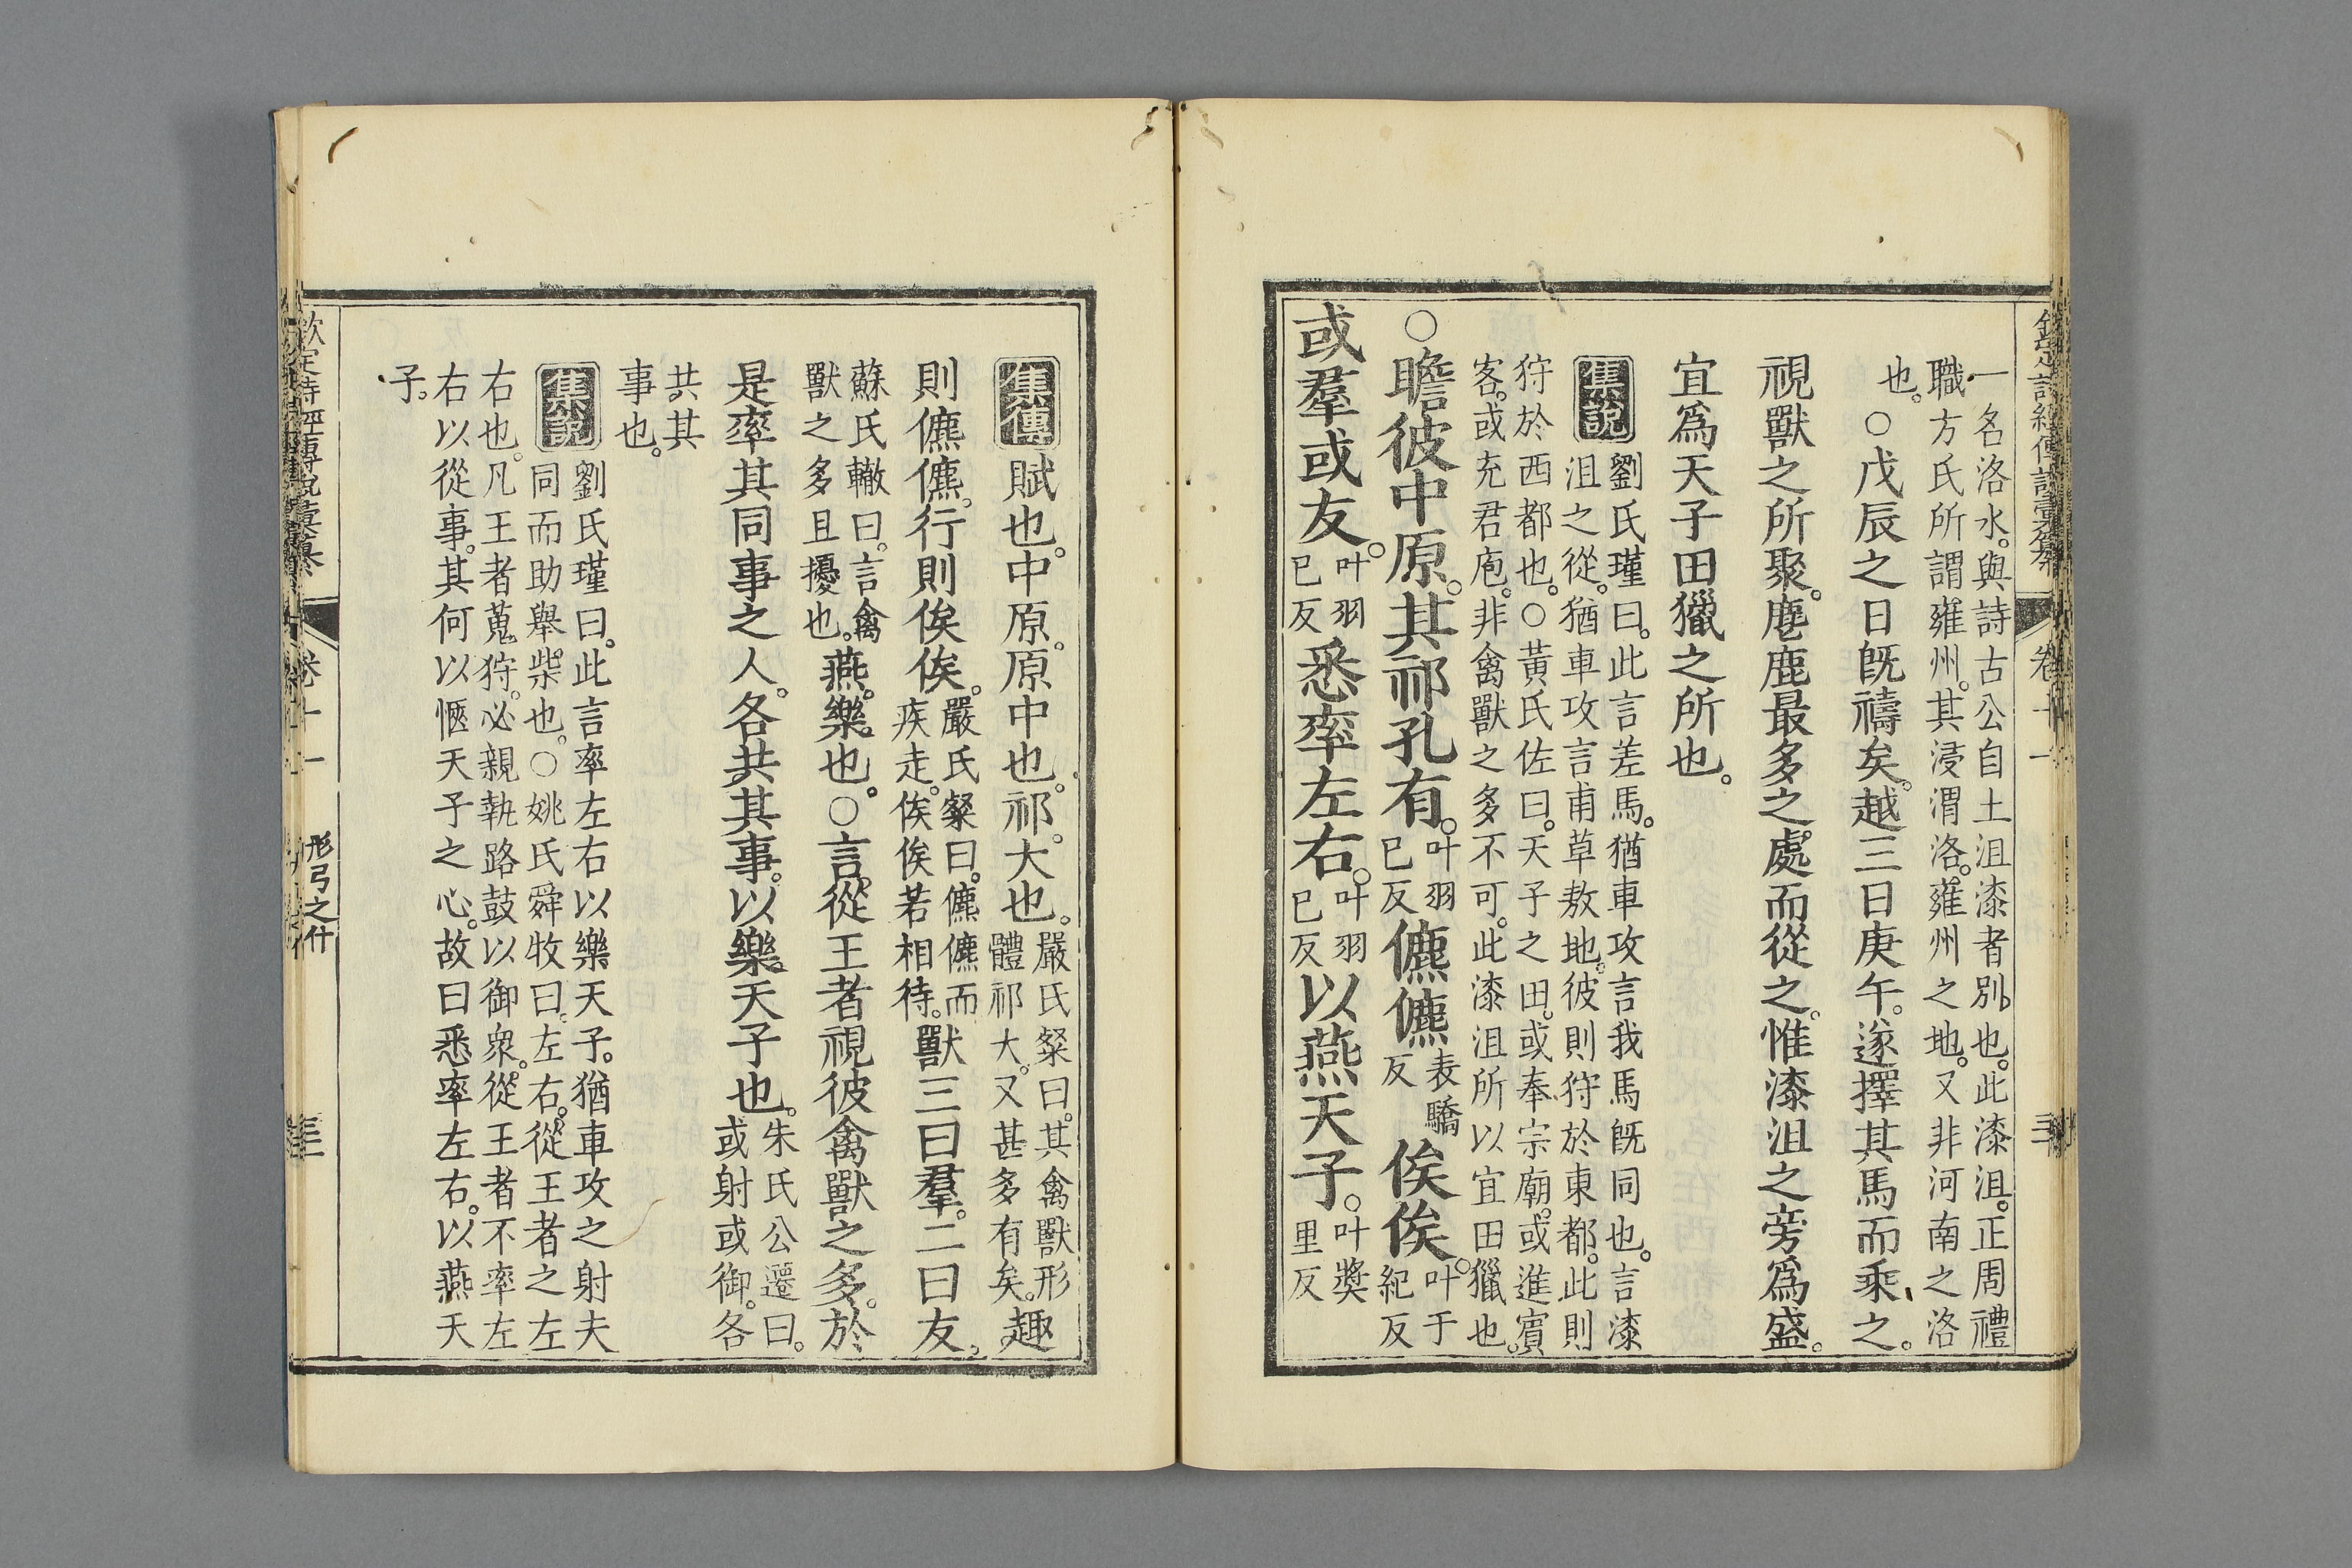 一名洛水。與詩古公自土沮漆者別也。此漆沮。正周禮
職方氏所謂雍州。其浸渭洛。雍州之地。又非河南之洛
也。○戊辰之日既禱矣。越三日庚午。遂擇其馬而乘之。
視獸之所聚。麀鹿最多之處而從之。惟漆沮之旁爲盛。
宜爲天子田獵之所也。
集說
劉氏瑾曰。此言差馬。猶車攻言我馬既同也。言漆
沮之從。猶車攻言甫草敖地。彼則狩於東都。此則
狩於西都也。○黃氏佐曰。天子之田。或奉宗廟。或進賓
客。或充君庖。非禽獸之多不可。此漆沮所以宜田獵也。
○瞻彼中原。其祁孔有。叶羽已反儦儦表驕反俟俟。叶于紀反
或羣或友。叶羽已反悉率左右。叶羽已反以燕天子。叶奬里反
集傳
賦也。中原。原中也。祁。大也。嚴氏粲曰。其禽獸形體祁大。又甚多有矣。趣
則儦儦。行則俟俟。嚴氏粲曰。儦儦而疾走。俟俟若相待。獸三曰羣。二曰友。
蘇氏轍曰。言禽獸之多且擾也。燕。樂也。○言從王者視彼禽獸之多。於
是率其同事之人。各共其事。以樂天子也。朱氏公遷曰。或射或御。各
共其事也。
集說
劉氏瑾曰。此言率左右以樂天子。猶車攻之射夫
同而助舉柴也。○姚氏舜牧曰。左右。從王者之左
右也。凡王者蒐狩。必親執路鼓以御衆。從王者不率左
右以從事。其何以愜天子之心。故曰悉率左右。以燕天
子。
欽定詩經傳說彙纂
卷十一
彤弓之什